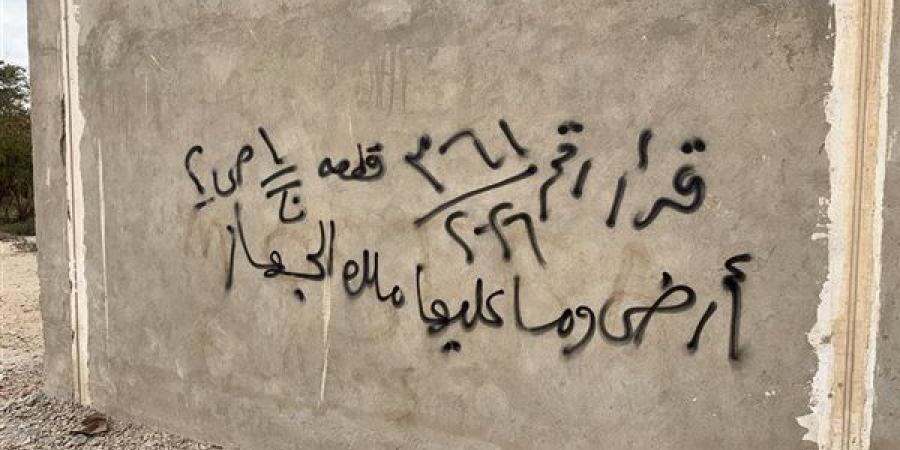 قرار رقم / ٢٠٢٦ قطعه ١/ج
أرض وما عليها ملك الجهاز